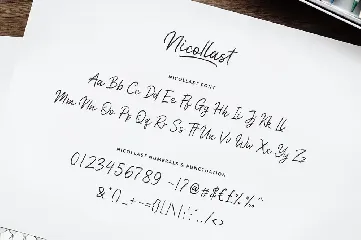 Nicollast
NICOLLAST FONT
Aa Bb Cc Dd Ee Ff Gg Hh Ii Jj Kk Ll
Mm Nn Oo Pp Qq Rr Ss Tt Uu Vv Ww Xx Yy Zz
NICOLLAST NUMERALS & PUNCTUATION
0123456789 ~!?@#$€£%^